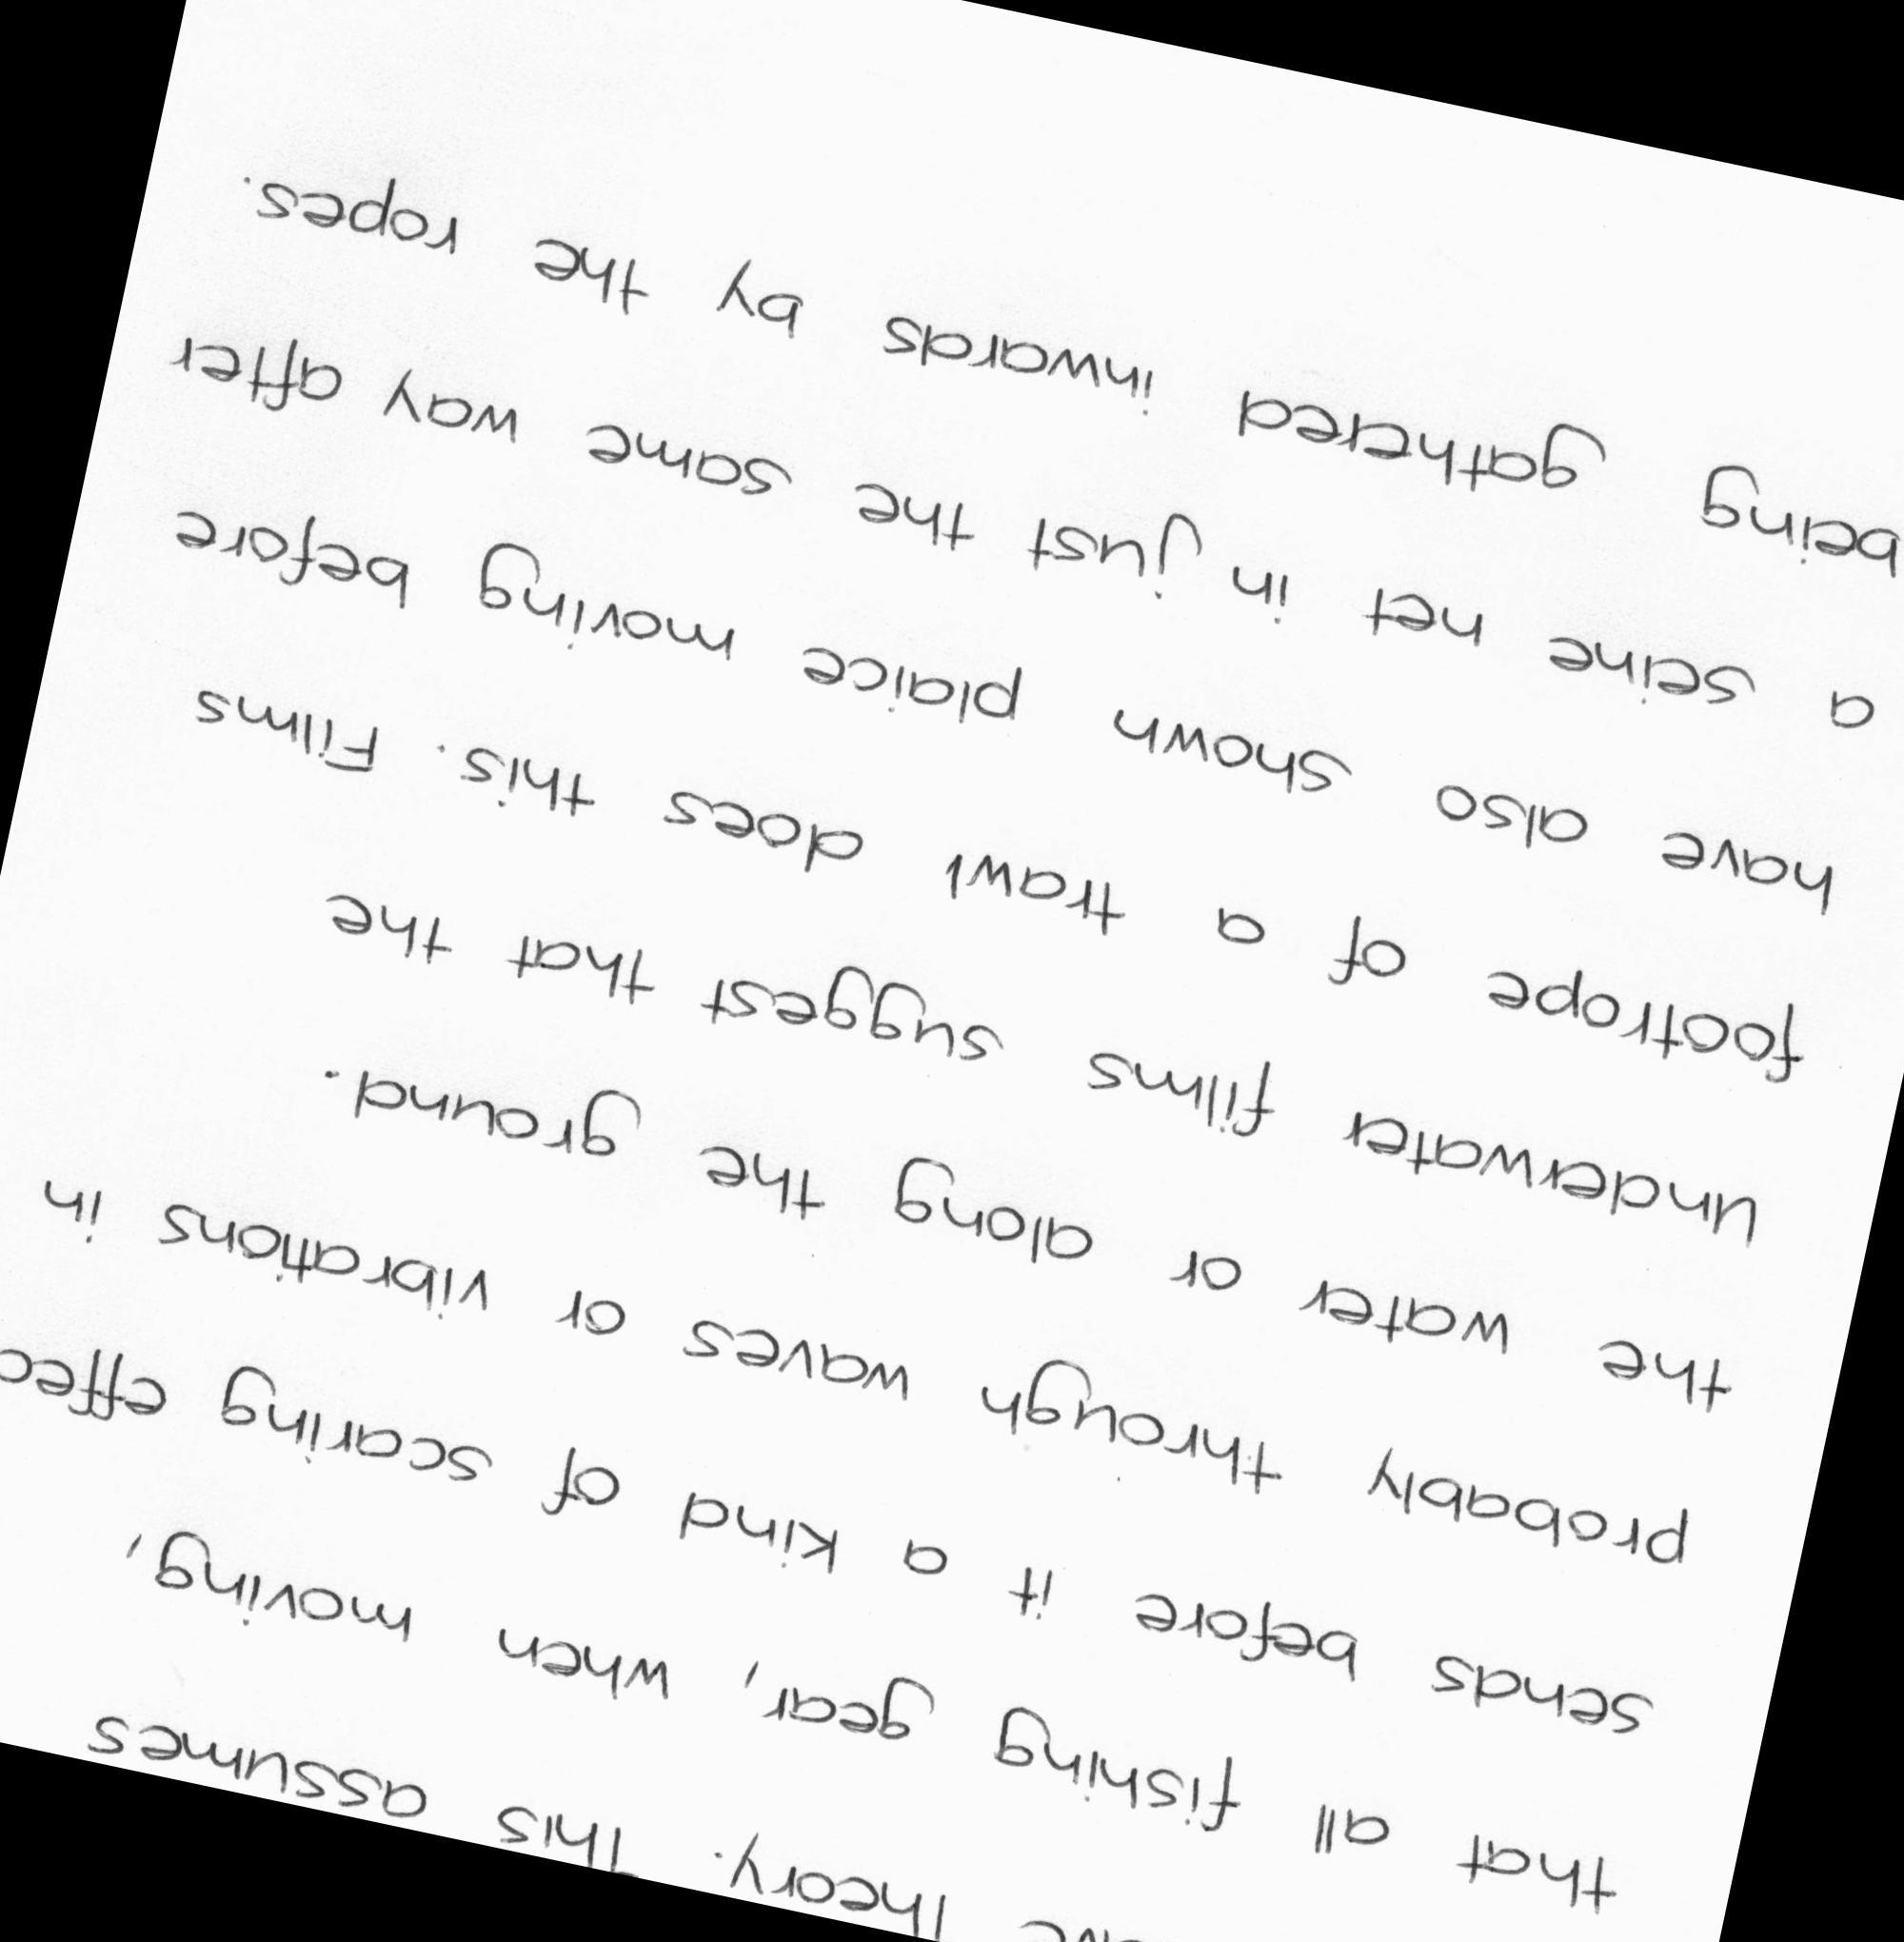 Theory. This assumes
that all fishing gear, when moving,
sends before it a kind of scaring effec
probably through waves or vibrations in
the water or along the ground.
Underwater films suggest that the
footrope of a trawl does this. Films
have also shown plaice moving before
a seine net in just the same way after
being gathered inwards by the ropes.